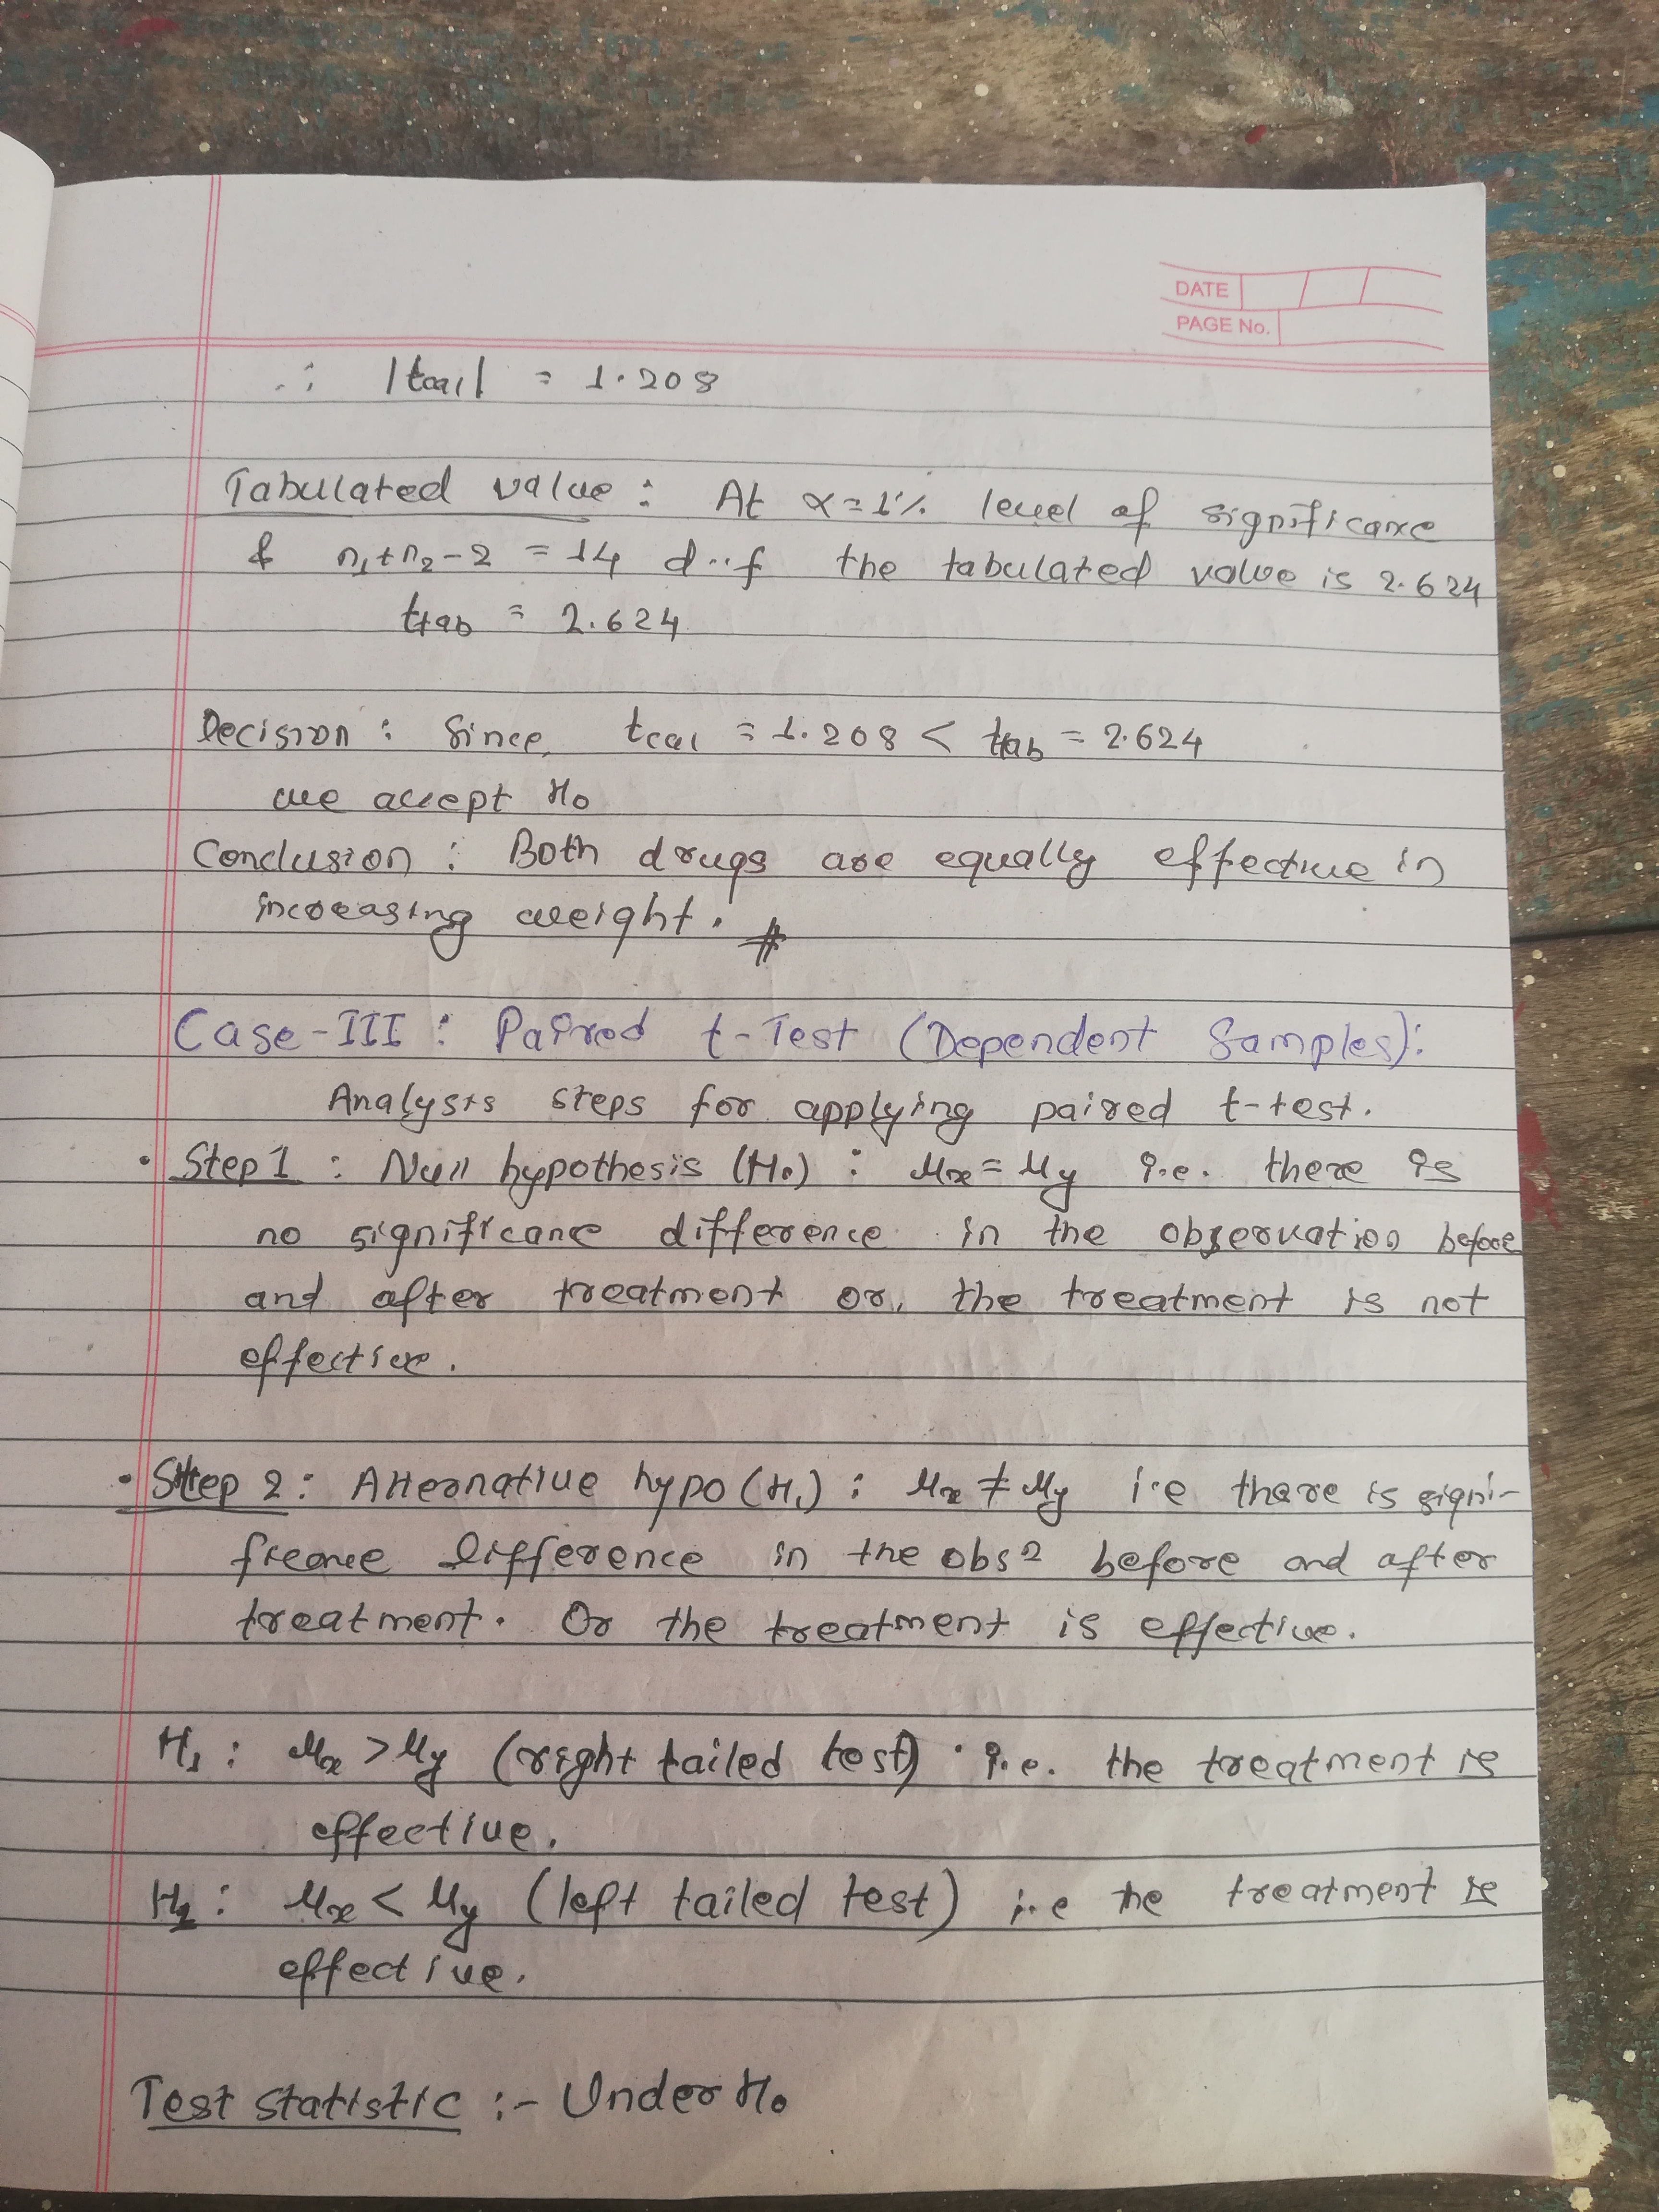 DATE
PAGE No.
∴ |tcal| = 1.208
Tabulated value : At α=1% level of significance
& n₁+n₂-2 = 14 d.f the tabulated value is 2.624
ttab = 2.624
Decision : Since, tcal = 1.208 < ttab = 2.624
we accept H₀
Conclusion : Both drugs are equally effective in
increasing weight. #
Case-III : Paired t-Test (Dependent Samples):
Analysis steps for applying paired t-test.
• Step 1 : Null hypothesis (H₀) : μx = μy i.e. there is
no significance difference in the observation before
and after treatment or, the treatment is not
effective.
• Step 2 : Alternative hypo (H₁) : μx ≠ μy i.e there is signi-
ficance difference in the obs² before and after
treatment. Or the treatment is effective.
H₁ : μx > μy (right tailed test) i.e. the treatment is
effective.
H₂ : μx < μy (left tailed test) i.e the treatment is
effective.
Test statistic :- Under H₀